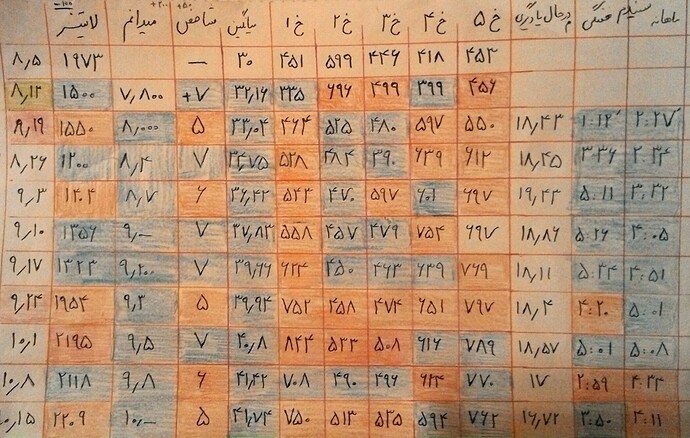 -۱۰۰ +۲۰۰ +۵۰
لایتنر میدانم شاخص میانگین خ ۱ خ ۲ خ ۳ خ ۴ خ ۵ درحال یادگیری خستگی سندیلم ماهانه
۸٫۵ ۱۹۷۳ — ۳۰ ۴۵۱ ۵۹۹ ۴۴۶ ۴۱۸ ۴۵۳
۸٫۱۲ ۱۵۰۰ ۷٫۸۰۰ +۷ ۳۱٫۱۶ ۳۳۵ ۶۹۶ ۴۹۹ ۳۹۹ ۴۵۶
۸٫۱۹ ۱۵۵۰ ۸٫۰۰۰ ۵ ۳۳٫۰۴ ۴۶۴ ۵۲۵ ۴۸۰ ۵۹۷ ۵۵۰ ۱۸٫۴۳ ۱:۱۲ ۲:۲۷
۸٫۲۶ ۱۲۰۰ ۸٫۴ ۷ ۳۴٫۷۵ ۵۲۸ ۴۸۴ ۳۹۰ ۶۳۹ ۶۱۲ ۱۸٫۴۵ ۳:۳۶ ۲:۳۴
۹٫۳ ۱۲۰۴ ۸٫۷ ۶ ۳۶٫۴۲ ۵۴۳ ۴۷۰ ۵۹۷ ۶۰۱ ۶۹۷ ۱۹٫۲۳ ۵:۱۱ ۳:۲۲
۹٫۱۰ ۱۳۵۶ ۹٫۰ ۷ ۳۷٫۸۳ ۵۵۸ ۴۵۷ ۴۷۹ ۷۵۴ ۶۹۷ ۱۸٫۸۶ ۵:۲۶ ۴:۰۵
۹٫۱۷ ۱۳۲۳ ۹٫۲۰۰ ۷ ۳۹٫۶۶ ۶۲۴ ۴۵۰ ۴۶۳ ۶۳۹ ۷۶۹ ۱۸٫۱۱ ۵:۲۴ ۴:۵۱
۹٫۲۴ ۱۹۵۴ ۹٫۳ ۵ ۳۹٫۹۴ ۷۵۲ ۴۵۸ ۴۷۴ ۶۵۱ ۷۹۷ ۱۸٫۴ ۴:۲۰ ۵:۰۱
۱۰٫۱ ۲۱۹۵ ۹٫۵ ۷ ۴۰٫۸ ۸۴۴ ۵۳۳ ۵۰۸ ۶۱۶ ۷۸۹ ۱۸٫۵۷ ۵:۰۱ ۵:۰۸
۱۰٫۸ ۲۱۱۸ ۹٫۸ ۶ ۴۱٫۴۲ ۷۰۸ ۴۹۰ ۴۹۶ ۶۲۴ ۷۷۰ ۱۷ ۲:۵۹ ۴:۴۴
۱۰٫۱۵ ۲۲۰۹ ۱۰٫۰ ۵ ۴۱٫۷۴ ۷۵۰ ۵۱۳ ۵۳۵ ۵۹۴ ۷۶۲ ۱۶٫۷۲ ۳:۵۰ ۴:۱۱